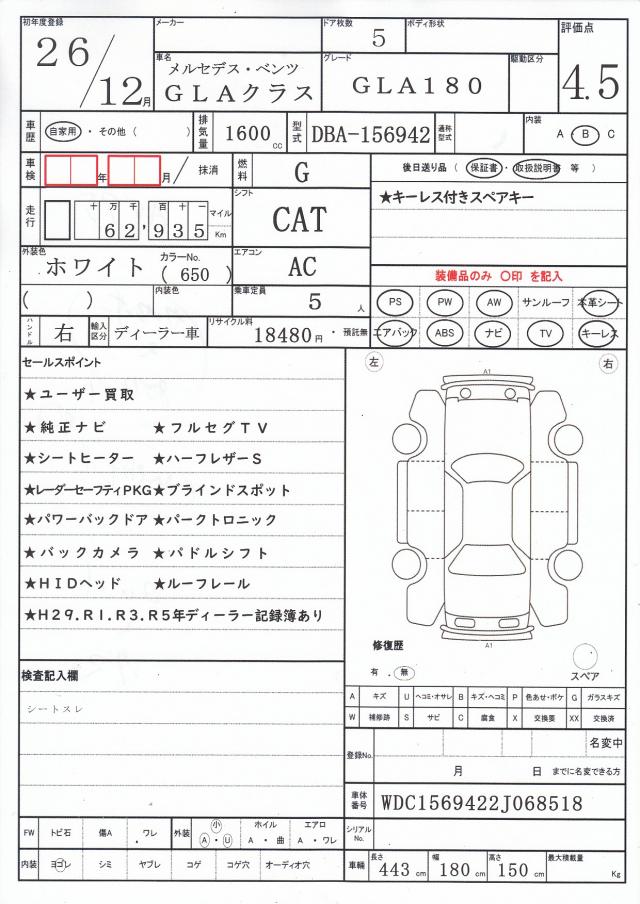 初年度登録 メーカー ドア枚数 ボディ形状 評価点
26/12月 5
車名 メルセデス・ベンツ グレード 駆動区分
GLAクラス GLA180 4.5
車歴 自家用・その他( ) 排気量 1600cc 型式 DBA-156942 通称型式 内装 A・B C
車検 年 月/ 抹消 燃料 G 後日送り品( 保証書・取扱説明書 等 )
走行 十万千百十一 62,935 マイル Km シフト CAT ★キーレス付きスペアキー
外装色 ホワイト カラーNo. ( 650 ) エアコン AC
装備品のみ 〇印 を記入
( ) 内装色 乗車定員 5人 PS PW AW サンルーフ 本革シート
ハンドル 右 輸入区分 ディーラー車 リサイクル料 18480円・預託無 エアバック ABS ナビ TV キーレス
セールスポイント 左 右
★ユーザー買取 A1
★純正ナビ ★フルセグTV
★シートヒーター ★ハーフレザーS
★レーダーセーフティPKG★ブラインドスポット
★パワーバックドア★パークトロニック
★バックカメラ ★パドルシフト
★HIDヘッド ★ルーフレール
★H29.R1.R3.R5年ディーラー記録簿あり
A1
修復歴
有 . 無 スペア
検査記入欄
シートスレ
A キズ U ヘコミ・オサレ B キズ・ヘコミ P 色あせ・ボケ G ガラスキズ
W 補修跡 S サビ C 腐食 X 交換要 XX 交換済
登録No. 名変中
月 日 までに名変できる方
車体番号 WDC1569422J068518
FW トビ石 傷A ワレ 外装 小 A・U ホイル A・曲 エアロ A・ワレ シリアルNo.
内装 ヨゴレ シミ ヤブレ コゲ コゲ穴 オーディオ穴 車輛 長さ 443cm 幅 180cm 高さ 150cm 最大積載量 Kg